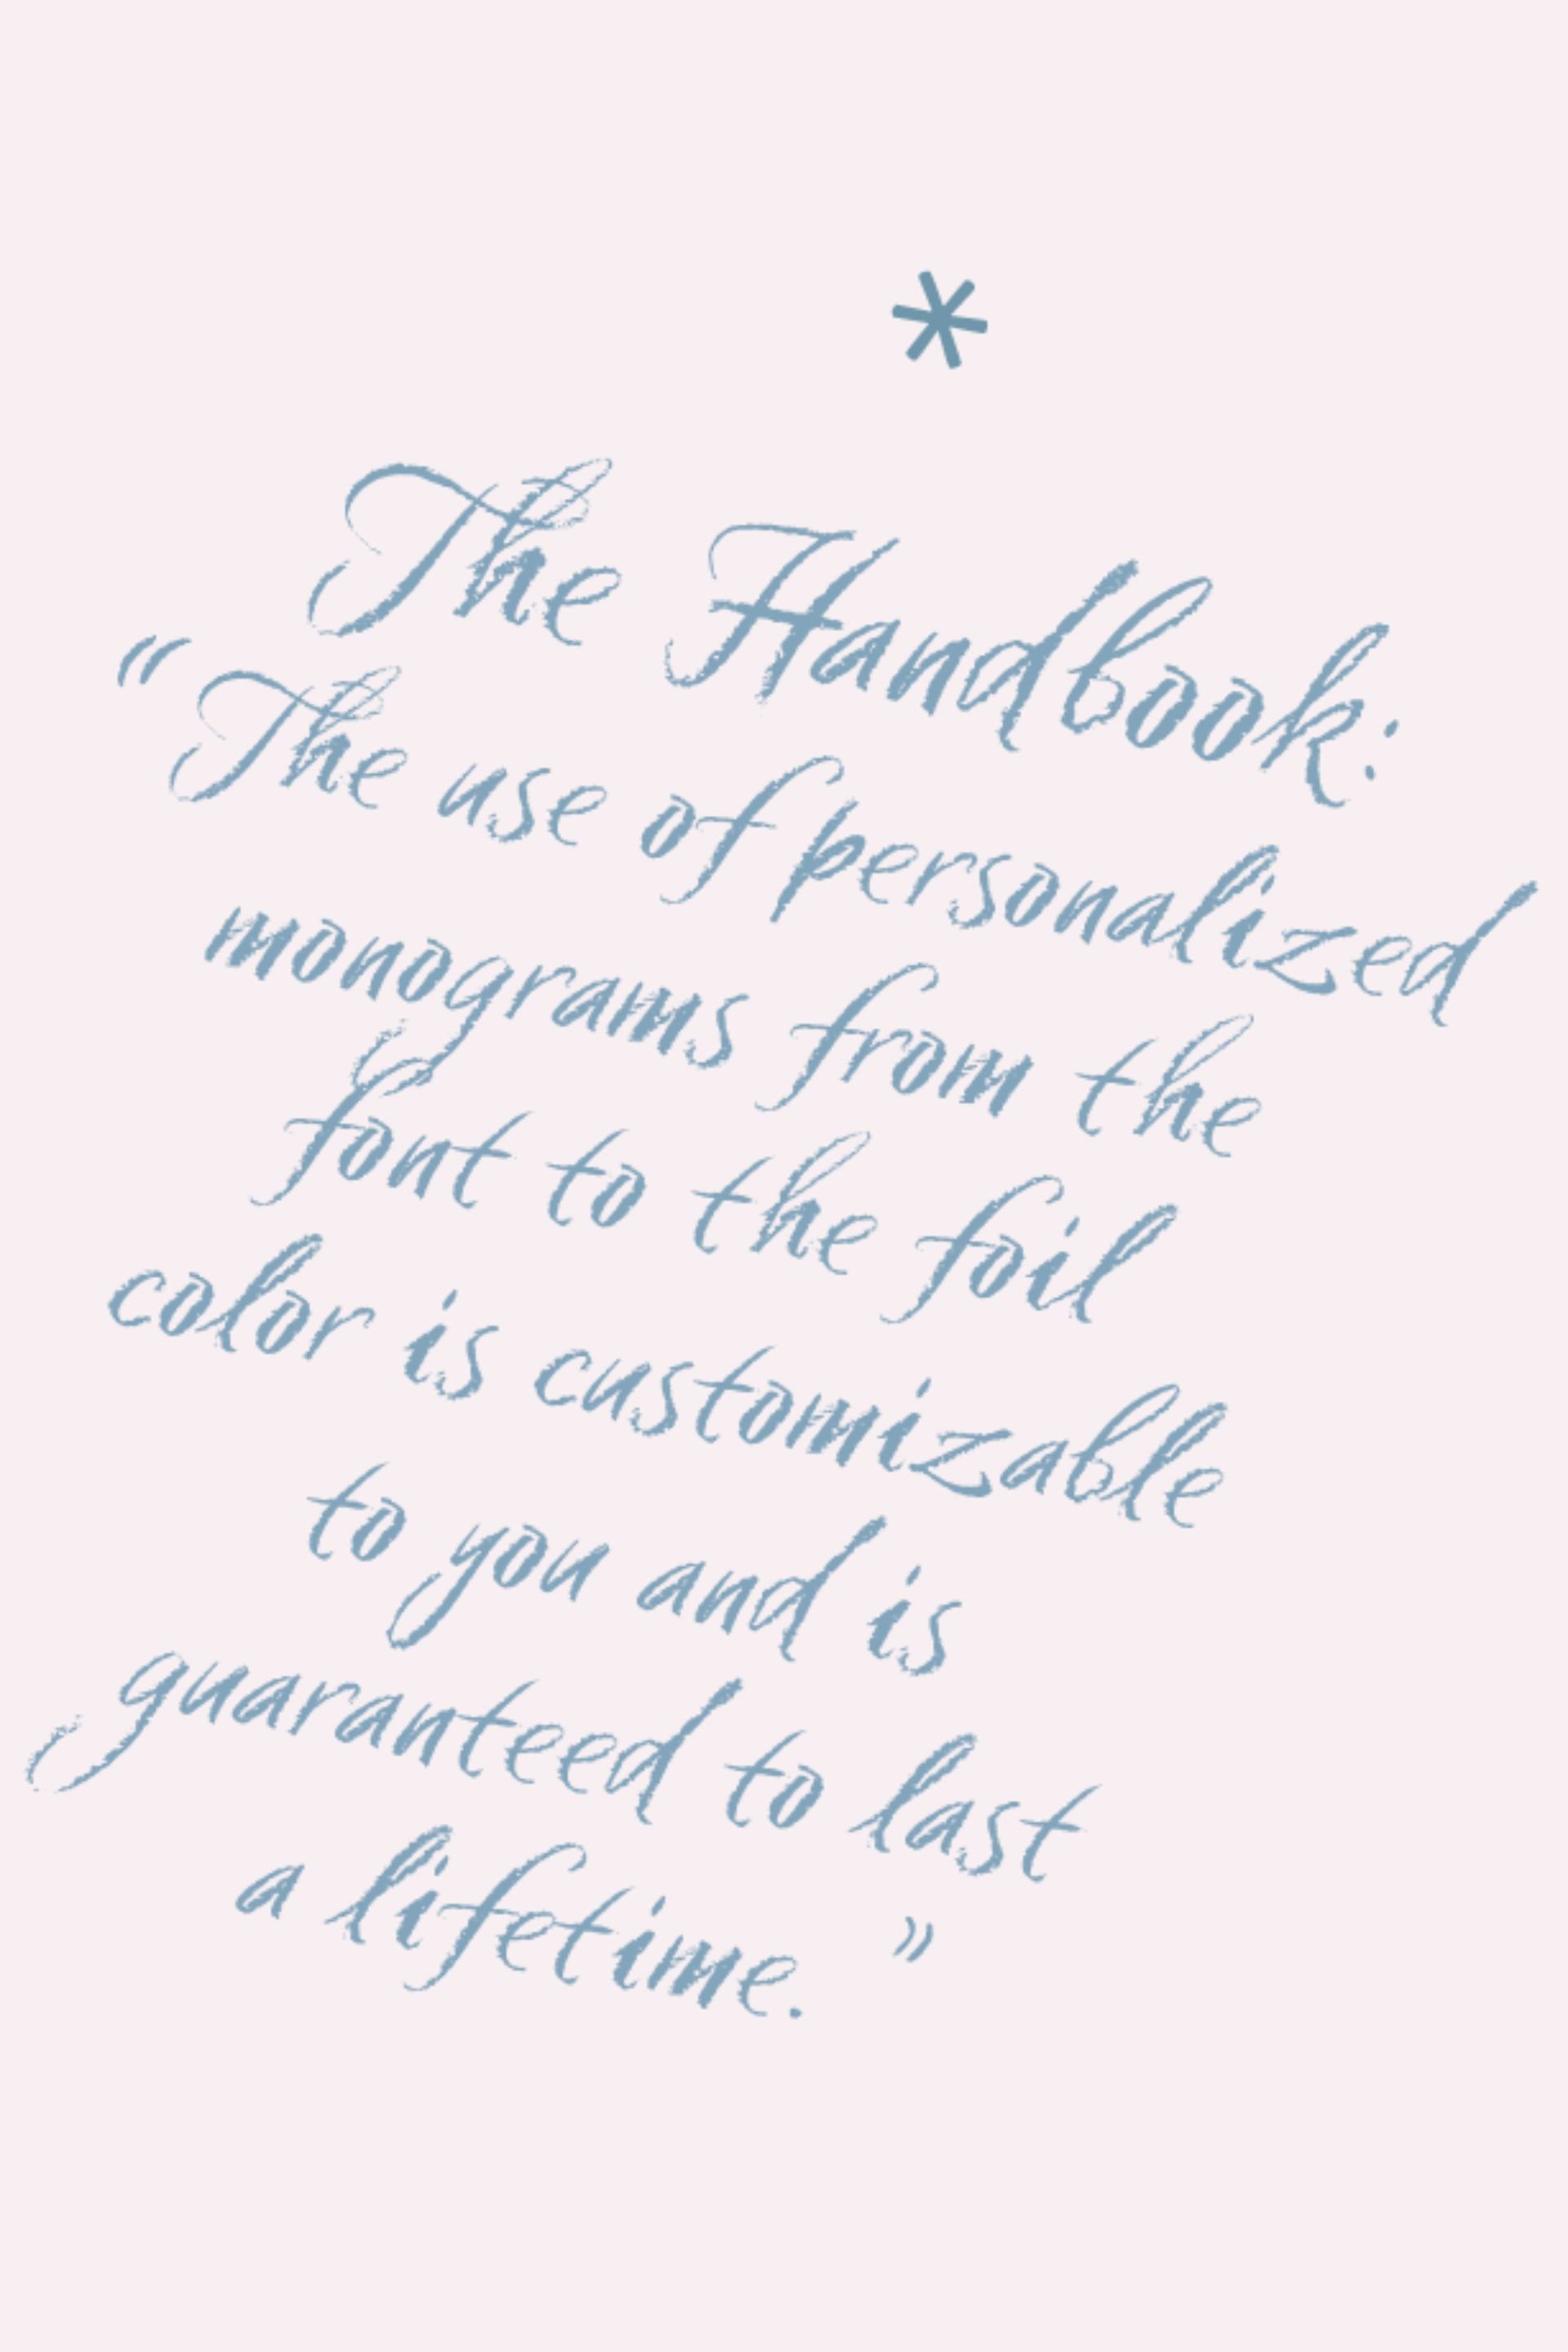 *
The Handbook:
“The use of personalized
monograms from the
font to the foil
color is customizable
to you and is
guaranteed to last
a lifetime. ”